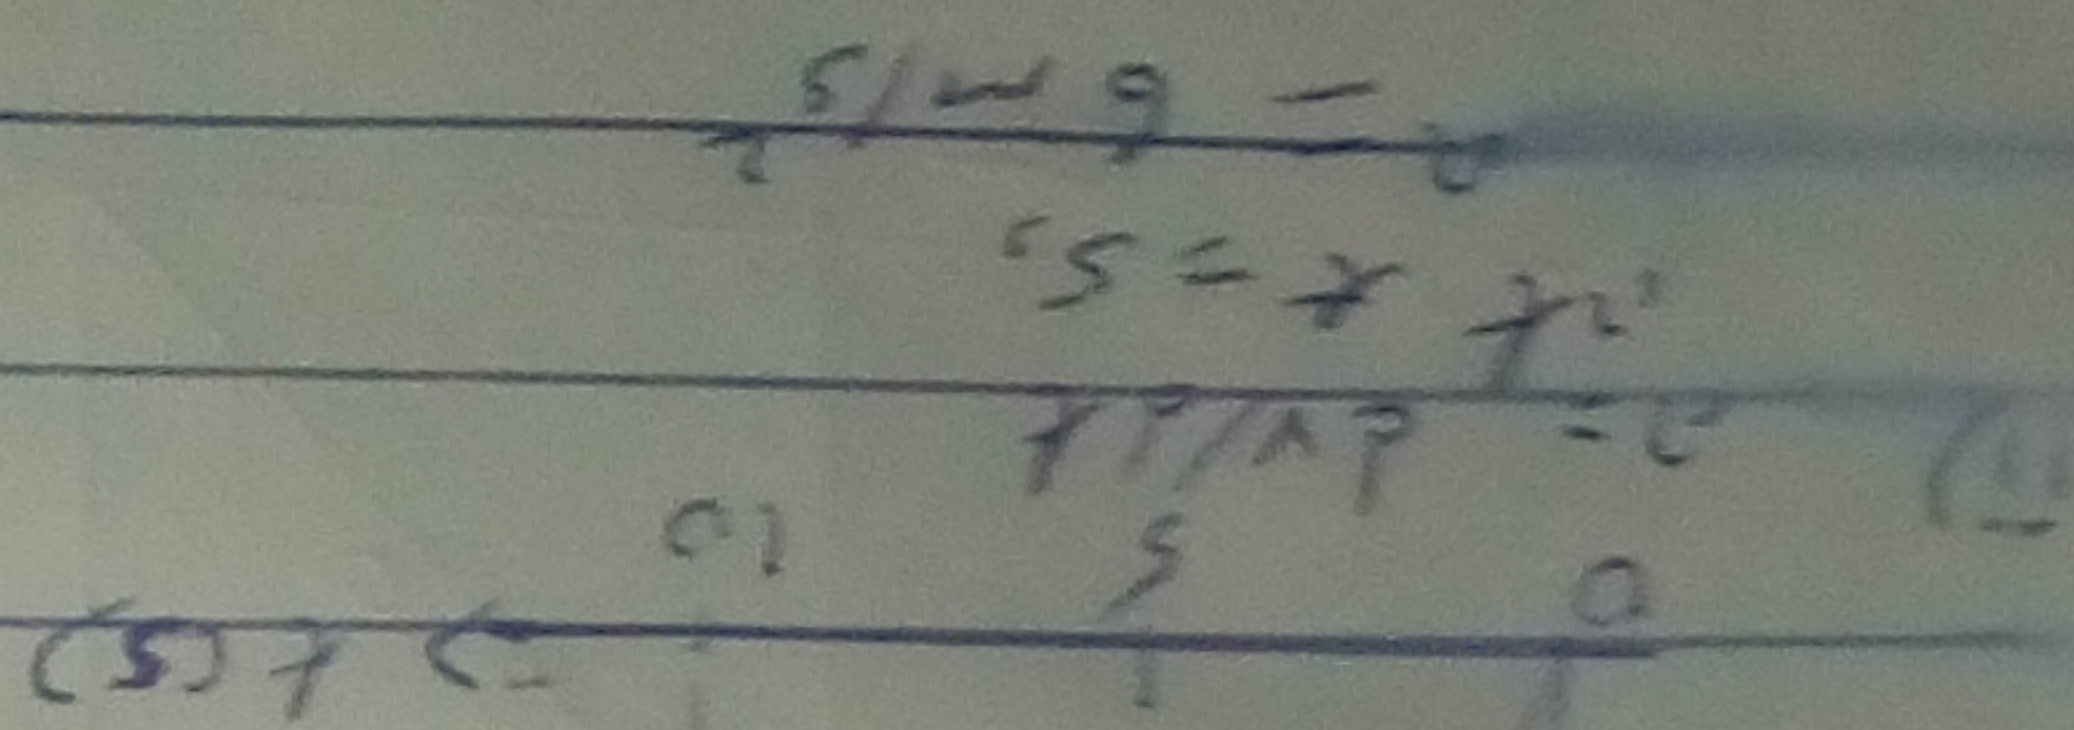 0 5 10 → t (s)
(ii) a = dv/dt
At t = 5s,
a = 6 m/s²